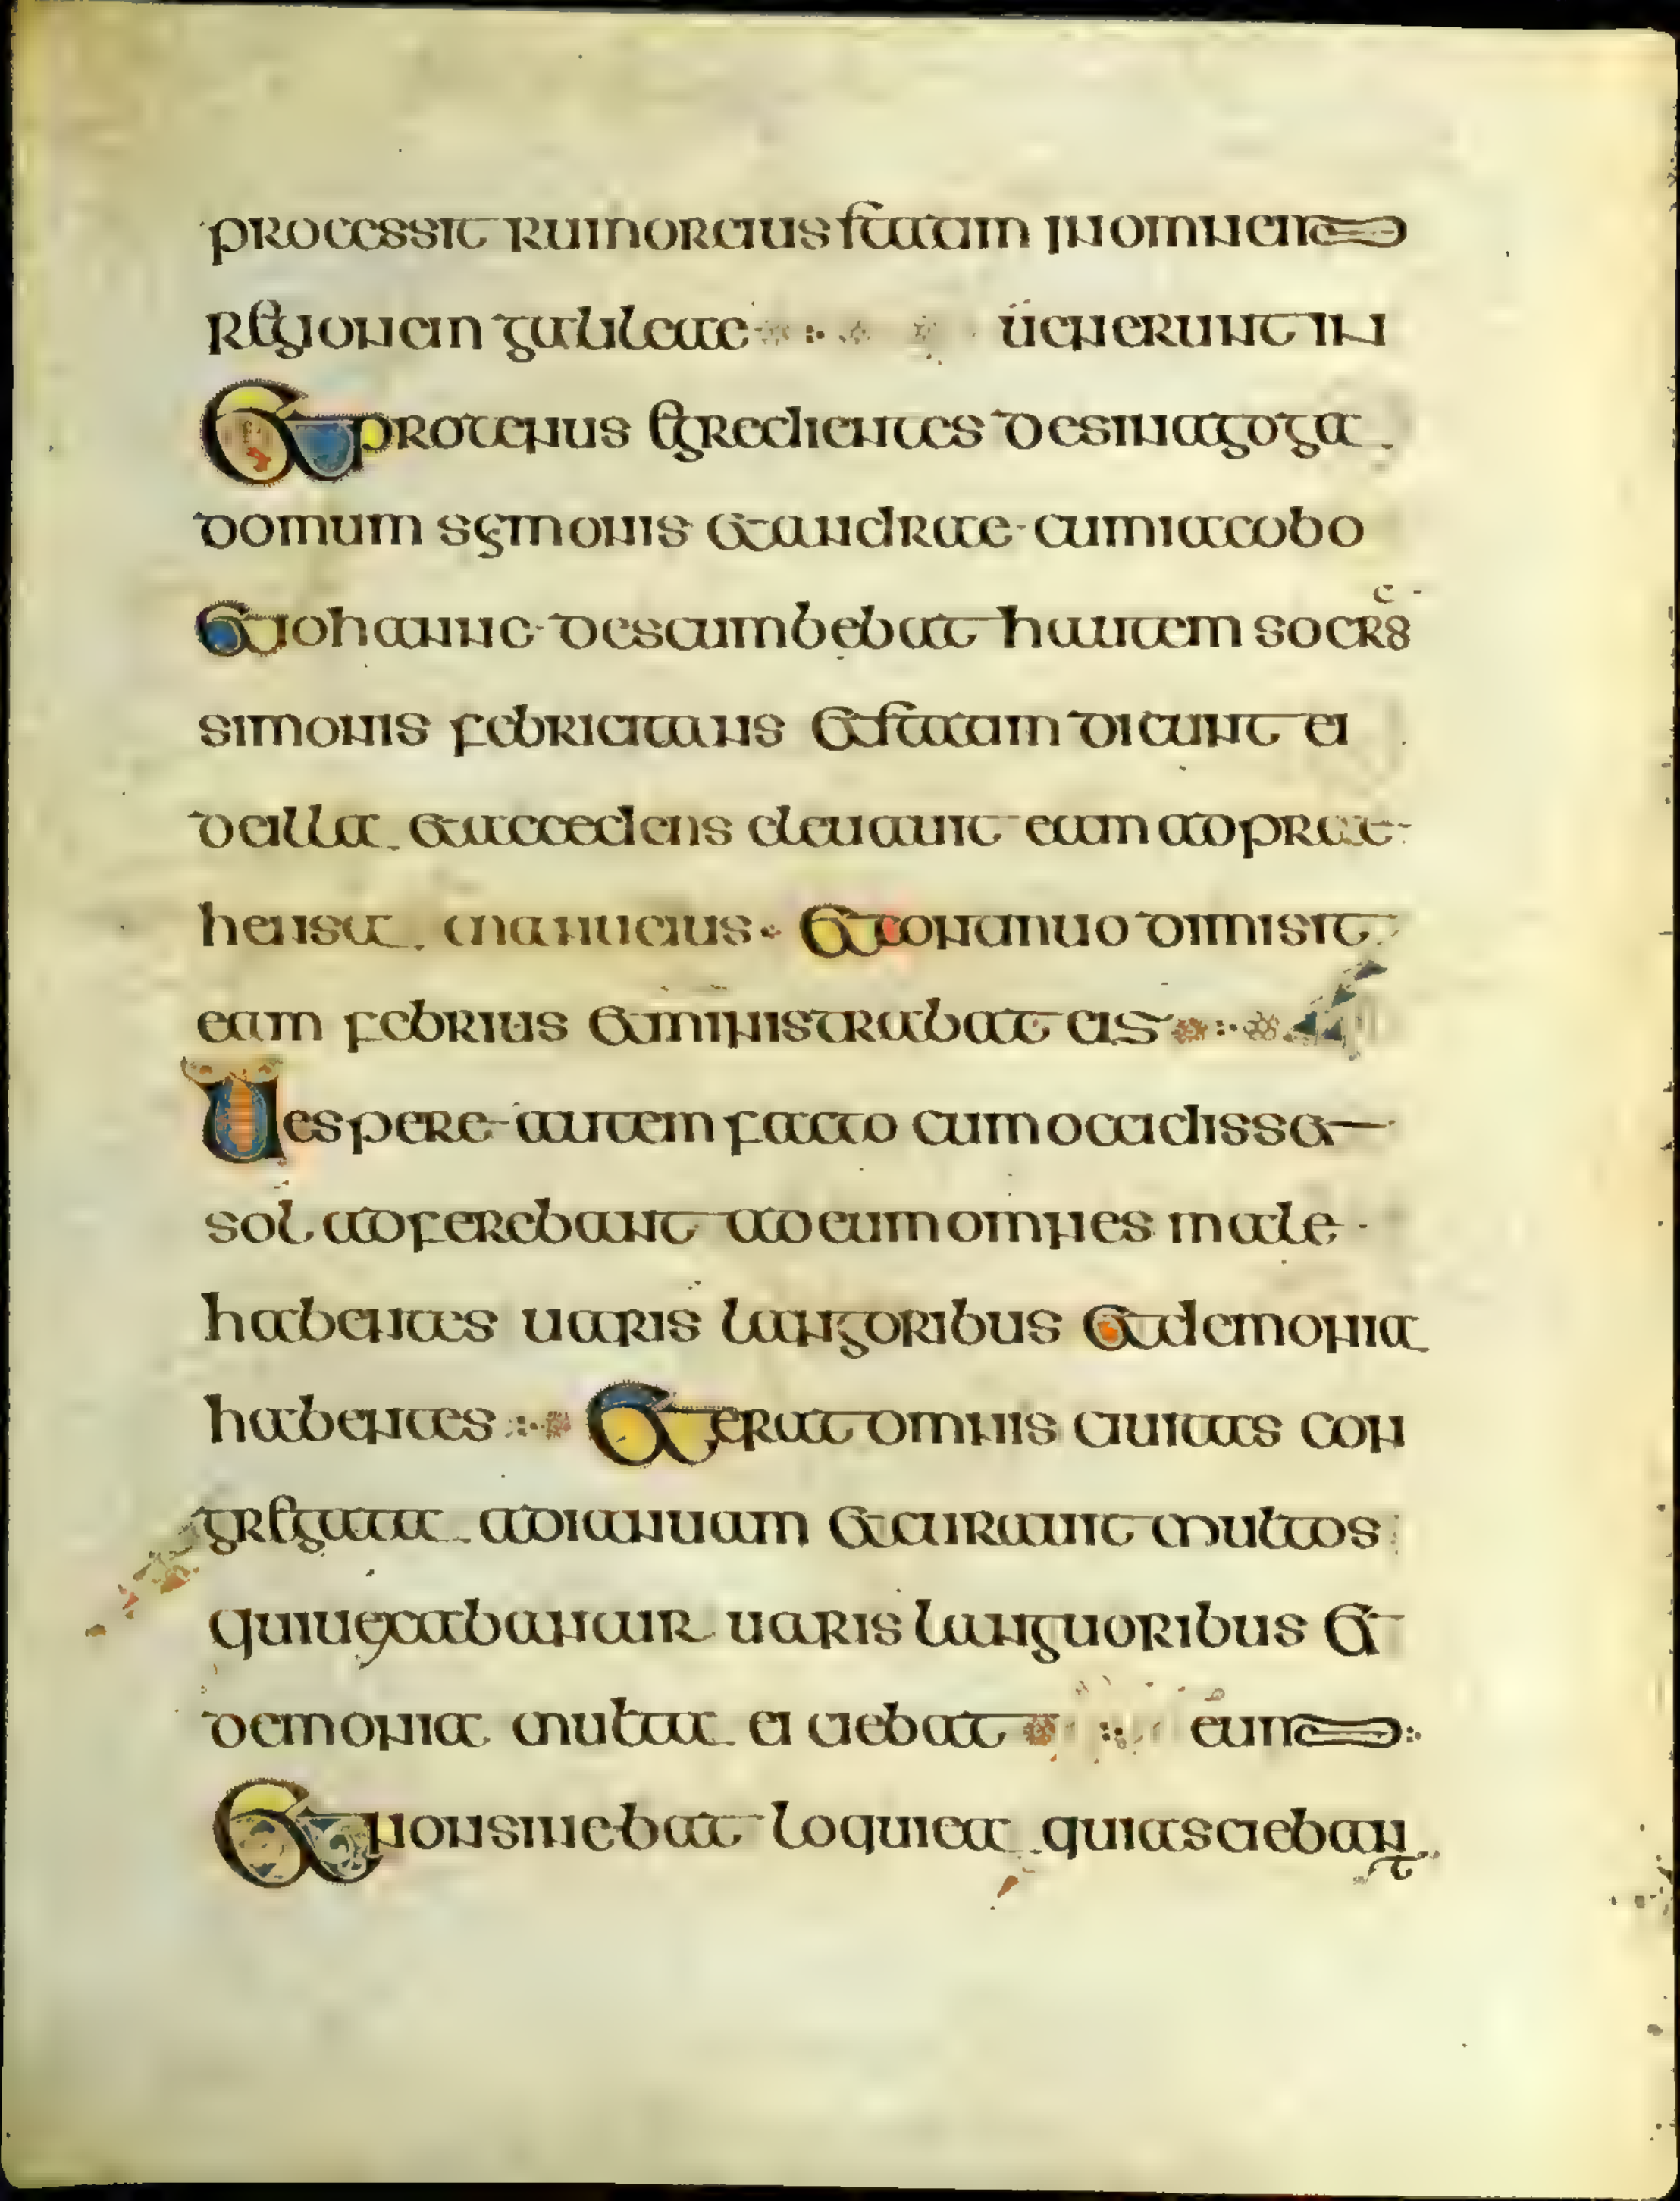 processit rumor eius statim in omnem
regionem galileae uenerunt in
Et protenus egredientes desinagoga
domum symonis et andreae cum iacobo
et iohanne descumbebat hautem socrus
simonis febricitans et statim dicunt ei
deilla et accedens eleuauit eam adprae
hensa manu eius Et continuo dimisit
eam febrius et ministrabat eis
Uespere autem facto cum occidisset
sol adferebant ad eum omnes male
habentes uaris langoribus et demonia
habentes Et erat omnis ciuitas con
gregata adianuam et curauit multos
qui uexabantur uaris languoribus et
demonia multa eiciebat eum
Et non sinebat loqui ea quia sciebant